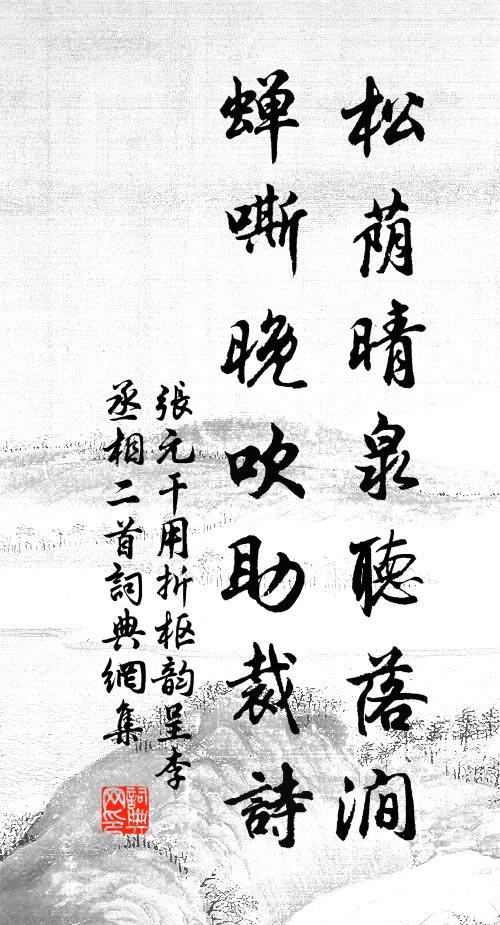 松荫晴泉聽落澗
蝉嘶晚吹助裁詩
張元干用折枢韵呈李
丞相二首詞典網集